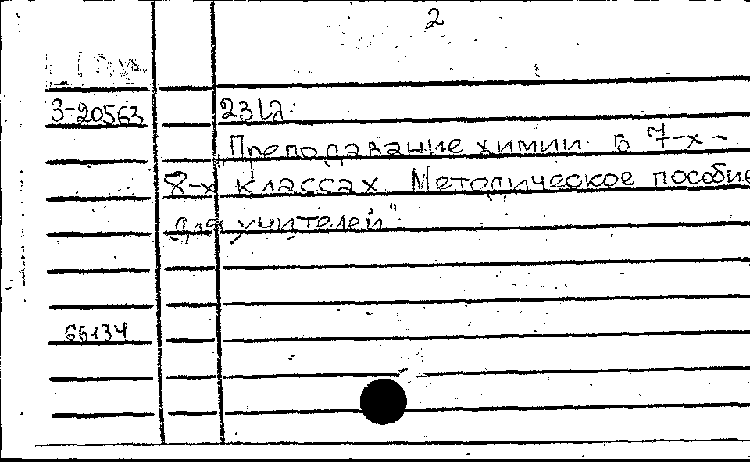 2
З-20563 231л.
Преподавание химии в 7-х -
8-х классах. Методическое пособие
для учителей".
66134